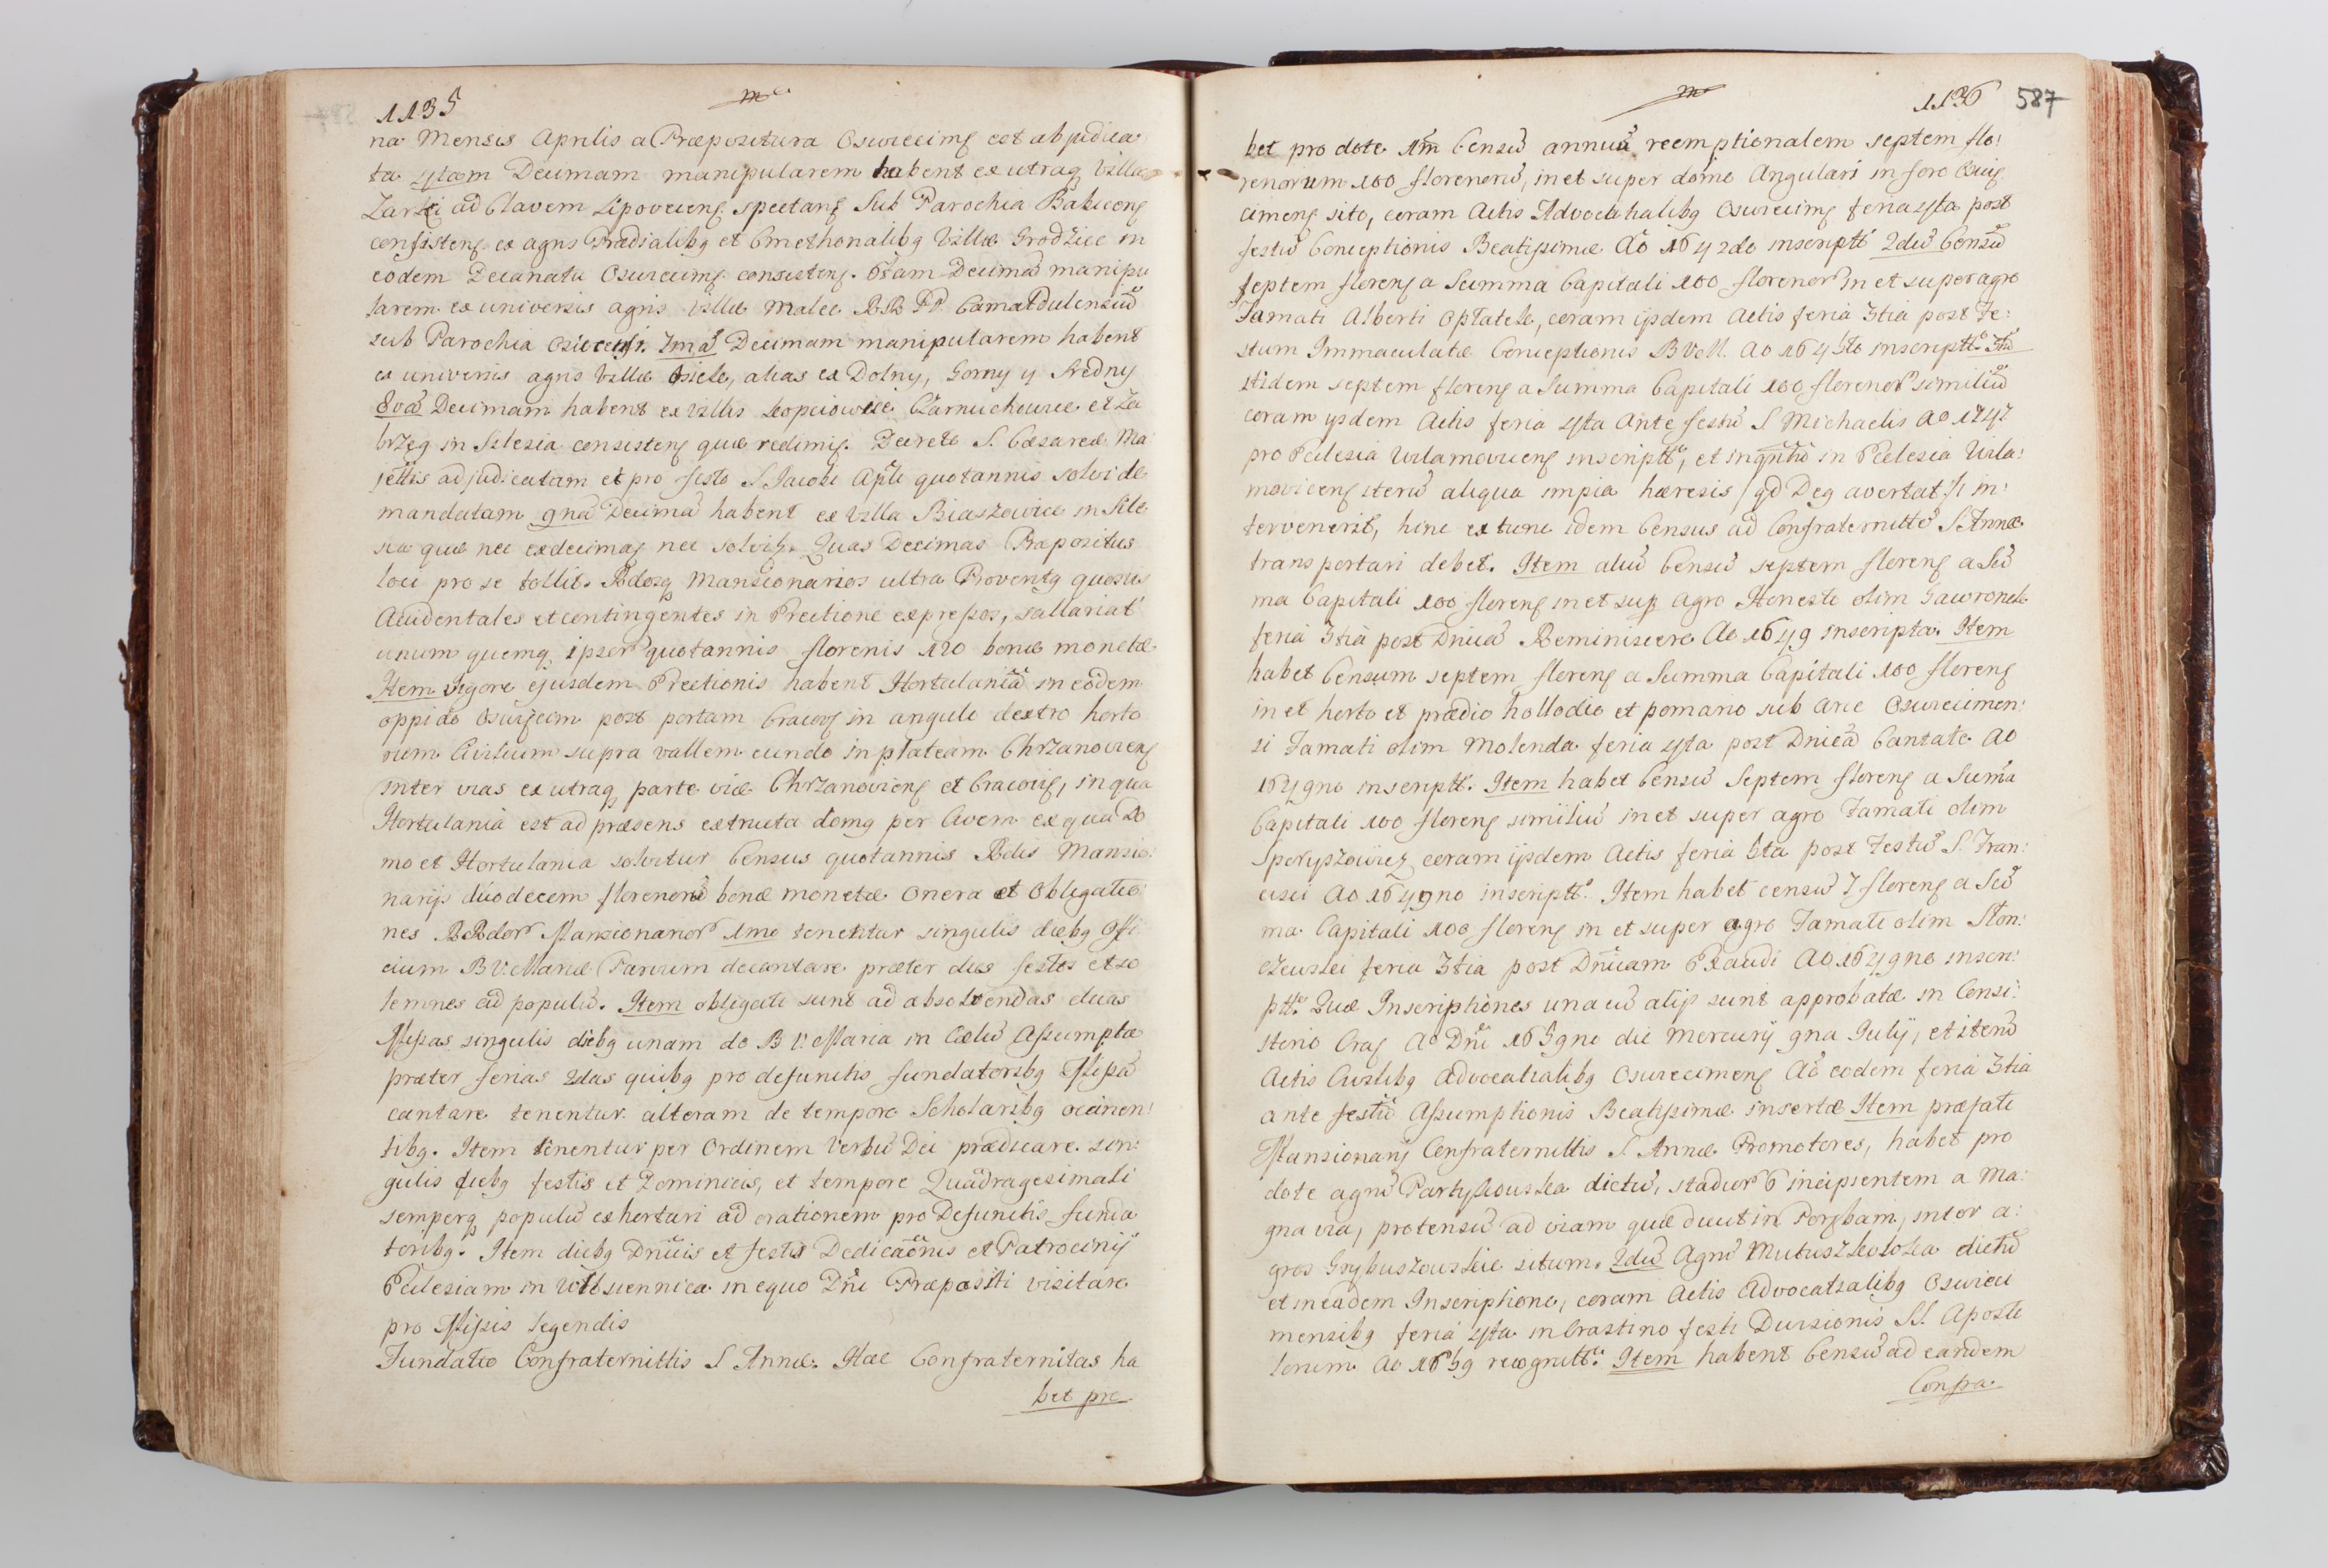 1135
na Mensis Aprilis a Præpositura Oswiecimę est abjudica
ta 4tam Decimam manipularem habent ex utraq Villa
Zarki ad Clavem Lipovecenę spectanę Sub Parochia Babicenę
consistenę ex agris Prædialibg et Cmethonalibg Villæ Grodziec in
eodem Decanatu Oswiecimę consistenę. 6tam Decimā manipu
larem ex universis agris villæ Malec RR PP. Camaldulensiū
sub Parochia Osiecensi. 7mā Decimam manipularem habent
ex universis agris Villæ Osiek, alias ex Dolny, Gorny y Sredny
8vā Decimam habent ex Villis Kopciowice Czarnuchowice et Za
brzeg in Silesia consistenę quæ redimię. Decreto S. Cæsareæ Ma
jettis adjudicatam et pro festo S. Jacobi Apli quotannis solvi de
mandatam 9nā Decimā habent ex Villa Biaszowice in Sile
sia quæ nec exdecimaę nec solvitę. Quas Decimas Præpositus
loci pro se tollit. Rdosq Mansionarios ultra Proventg quosvis
Accidentales et contingentes in Erectione expressos, sallariat
unum quemq ipsor quotannis florenis 120 bonæ monetæ
Item vigore ejusdem Erectionis habent Hortulaniā in eodem
oppido Oswięcim post portam Cracovę in angulo dextro horto
rum Civilium supra vallem eundo in plateam Chrzanovienę
inter vias ex utraq parte viæ Chrzanovienę et Cracovię, in qua
Hortulania est ad præsens extructa domg per Civem ex qua Do
mo et Hortulania solvitur Census quotannis Rdis Mansio:
narijs duodecem florenorū bonæ monetæ Onera et Obligatio:
nes RRdor Mansionarior 1mo tenentur singulis diebg Offi
cium B V. Mariæ Parvum decantare præter dies festos et so
lemnes ad populū. Item obligati sunt ad absolvendas duas
Missas singulis diebg unam de B V. Maria in Cælū Assumpta
præter ferias 2das quibg pro defunctis fundatoribg Missā
cantare tenentur alteram de tempore Scholaribg occinen:
tibg. Item tenentur per Ordinem Verbū Dei prædicare sin:
gulis diebg festis et Dominicis, et tempore Quadragesimali
semperq populū exhortari ad orationem pro Defunctis funda
toribg. Item diebg Dnicis et festis Dedicaōnis et Patrocinij
Ecclesiam in in equo Dñi Præpositi visitare
pro Missis legendis
Fundatio Confraternittis S Annæ. Hæc Confraternitas ha
bet pro
1136 587
bet pro dote 1m Censū annuū reemptionalem septem flo:
renorum 100 florenorū, in et super domo Angulari in foro Oswię
cimenę sito, coram Actis Advocatialibg Oswiecimę feria 4ta post
festū Conceptionis Beatissimæ Ao 1642do inscriptt 2dū Censū
septem florenę a Summa Capitali 100 florenor in et super agro
Famati Alberti Opłatek, coram ijsdem Actis feria 3tia post Fe:
stum Immaculatæ Conceptionis B V M. Ao 1645to inscriptt 3tiū
itidem septem florenę a Summa Capitali 100 florenor similiū
coram ijsdem Actis feria 4ta Ante festū S Michaelis Ao
pro Ecclesia Wilamovicenę inscriptt, et in Ecclesia Wila:
movicenę iterū aliqua impia hæresis /:qd Deg avertat:/ in:
tervenerit, hinc ex tunc idem Census ad Confraternittē S. Annæ
transportari debet. Item aliū Censū septem florenę a Sū
ma Capitali 100 florenę in et sup agro Honesti olim Gawronek
feria 3tia post Dnicā Reminiscere Ao 1649 inscripta. Item
habet Censum septem florenę a Summa Capitali 100 florenę
in et horto et prædio hallodio et pomario sub Arce Oswiecimen:
si Famati olim Molenda feria 4ta post Dnicā Cantate Ao
1649no inscriptt. Item habet Censū Septem florenę a Sum̄a
Capitali 100 florenę similiū in et super agro Famati olim
coram ijsdem Actis feria 5ta post Festū S. Fran:
cisci Ao 1649no inscriptt. Item habet censū 7 florenę a Sū
ma Capitali 100 florenę in et super agro Famati olim Ston:
czewski feria 3tia post Dnicam Exaudi Ao 1649no inscri:
ptt. Quæ Inscriptiones una cū alijs sunt approbatæ in Consi:
storio Crac Ao Dñi 1659no die Mercurij 9na Julij, et iterū
Actis Civilibg Advocatialibg Oswiecimenę Ao eodem feria 3tia
ante festū Assumptionis Beatissimæ insertæ Item præfati
Mansionarij Confraternittis S Annæ Promotores, habet pro
dote agrū dictū, stadior 6 incipientem a Ma:
gna via, protensū ad viam quæ ducit in Porębam, inter a:
gros Grybuszowskie situm. 2dū Agrū dictū
et in eadem Inscriptione, coram Actis Advocatialibg Oswieci
mensibg feria 4ta in Crastino festi Divisionis SS. Aposto
lorum Ao recognitt. Item habent Censū ad eandem
Confra.